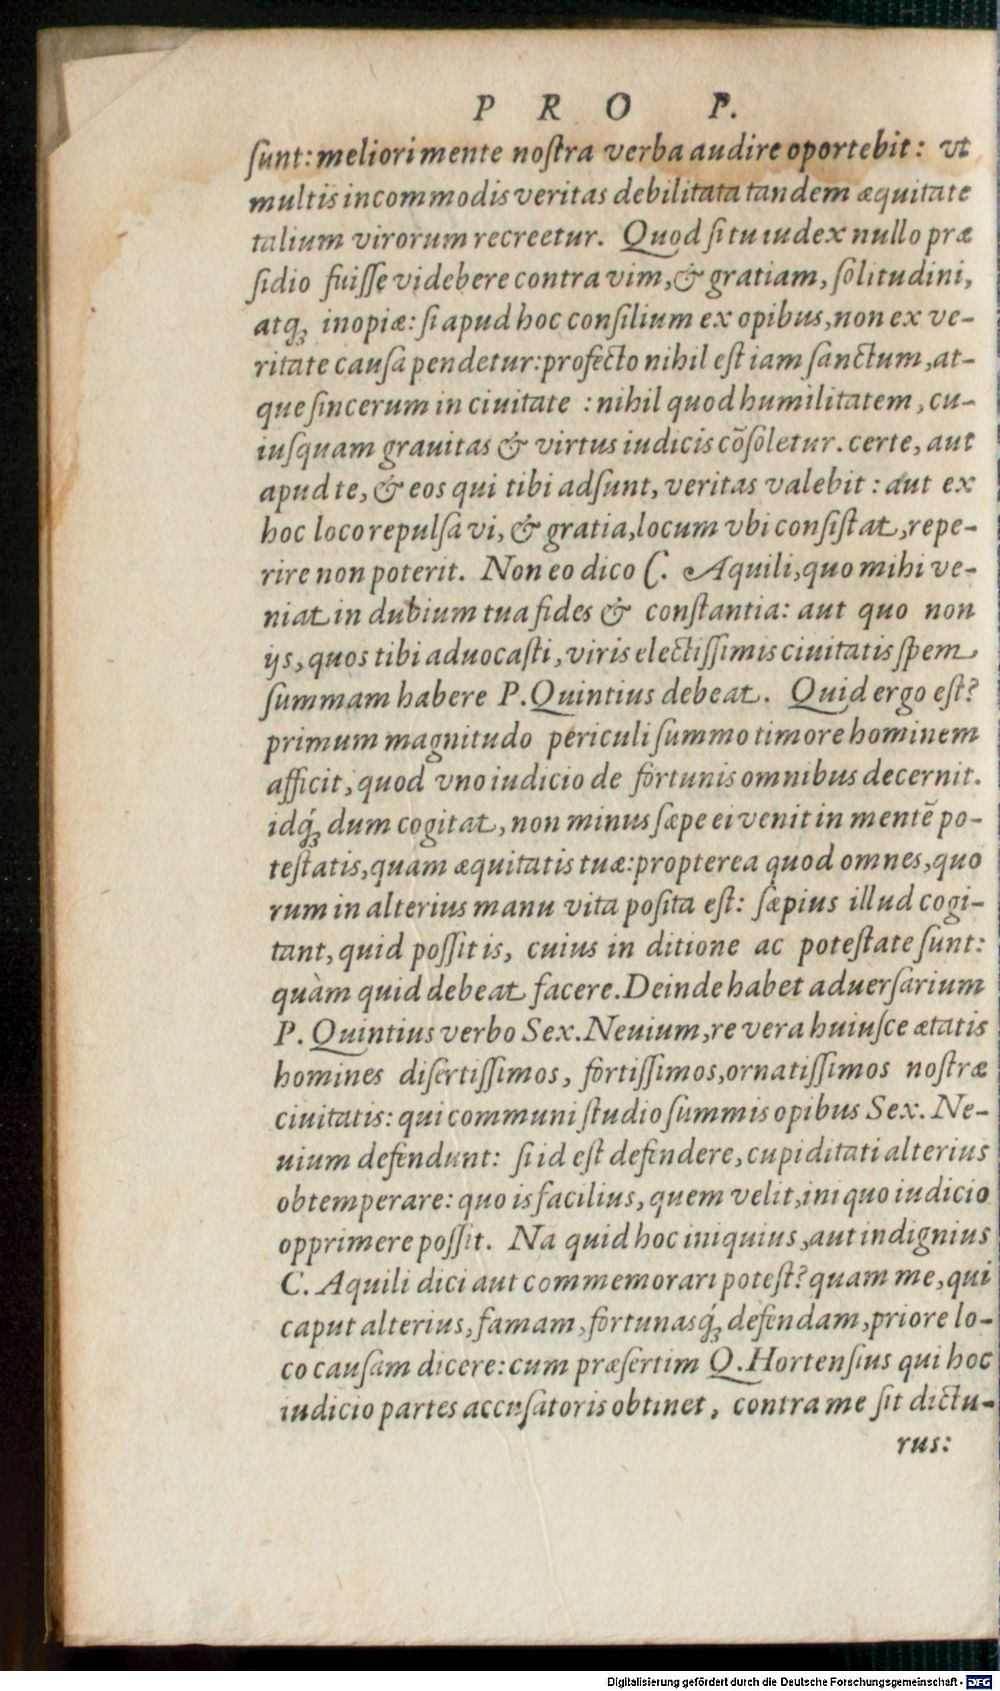 PRO P.
ſunt: meliori mente noſtra verba audire oportebit: vt
multis incommodis veritas debilitata tandem æquitate
talium virorum recreetur. Quod ſi tu iudex nullo præ
ſidio fuiſſe videbere contra vim, & gratiam, ſolitudini,
atqꝫ inopiæ: ſi apud hoc conſilium ex opibus, non ex ve-
ritate cauſa pendetur: profecto nihil eſt iam ſanctum, at-
que ſincerum in ciuitate : nihil quod humilitatem, cu-
iuſquam grauitas & virtus iudicis cōſoletur. certe, aut
apud te, & eos qui tibi adſunt, veritas valebit : aut ex
hoc loco repulſa vi, & gratia, locum vbi conſiſtat, repe-
rire non poterit. Non eo dico C. Aquili, quo mihi ve-
niat in dubium tua fides & conſtantia: aut quo non
ijs, quos tibi aduocaſti, viris electiſſimis ciuitatis ſpem
ſummam habere P. Quintius debeat. Quid ergo eſt?
primum magnitudo periculi ſummo timore hominem
afficit, quod vno iudicio de fortunis omnibus decernit.
idq́ꝫ dum cogitat, non minus ſæpe ei venit in mentē po-
teſtatis, quam æquitatis tuæ: propterea quod omnes, quo
rum in alterius manu vita poſita eſt: ſæpius illud cogi-
tant, quid poſſit is, cuius in ditione ac poteſtate ſunt:
quàm quid debeat facere. Deinde habet aduerſarium
P. Quintius verbo Sex. Neuium, re vera huiuſce ætatis
homines diſertiſſimos, fortiſſimos, ornatiſſimos noſtræ
ciuitatis: qui communi ſtudio ſummis opibus Sex. Ne-
uium defendunt: ſi id eſt defendere, cupiditati alterius
obtemperare: quo is facilius, quem velit, iniquo iudicio
opprimere poſſit. Na quid hoc iniquius, aut indignius
C. Aquili dici aut commemorari poteſt? quam me, qui
caput alterius, famam, fortunasq́ꝫ defendam, priore lo-
co cauſam dicere: cum præſertim Q. Hortenſius qui hoc
iudicio partes accuſatoris obtinet, contra me ſit dictu-
rus:
Digitalisierung gefördert durch die Deutsche Forschungsgemeinschaft - DFG